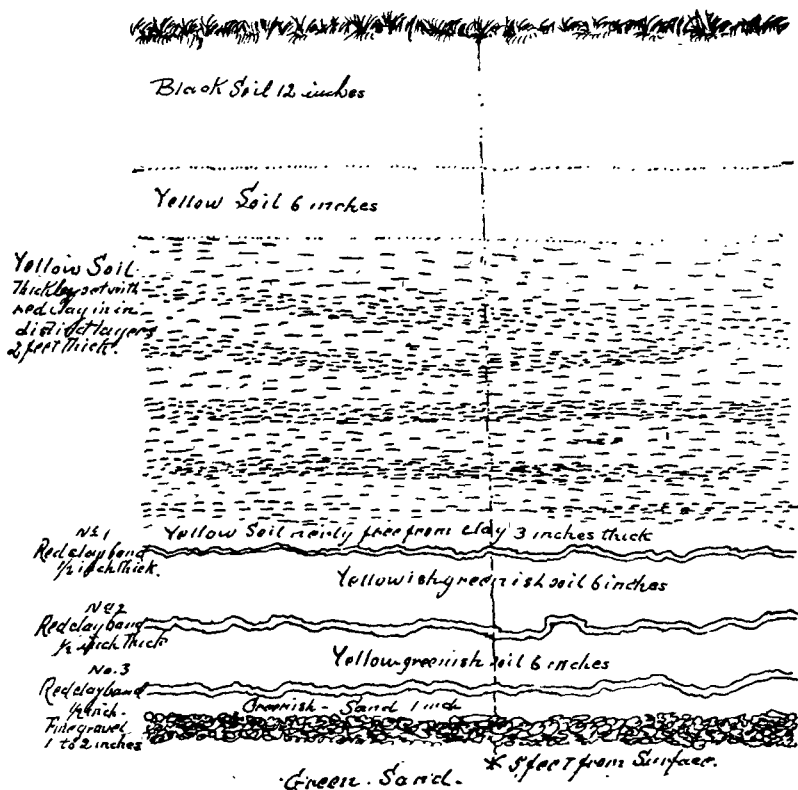 Black Soil 12 inches
Yellow Soil 6 inches
Yellow Soil
Thickley set with
red clay in in
distinct layers
2 feet thick.
Yellow Soil nearly free from clay 3 inches thick
No. 1
Red clay band
1/2 inch thick.
Yellowish greenish soil 6 inches
No. 2
Red clay band
1/2 inch thick
Yellow-greenish soil 6 inches
No. 3
Red clay band
1/2 inch.
Greenish - Sand 1 inch
Fine gravel
1 to 2 inches
* 5 feet from Surface.
Green. Sand.